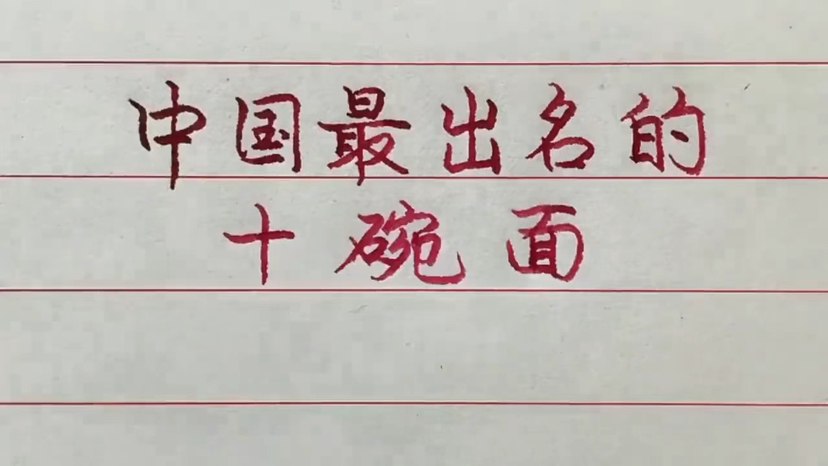 中国最出名的
十碗面